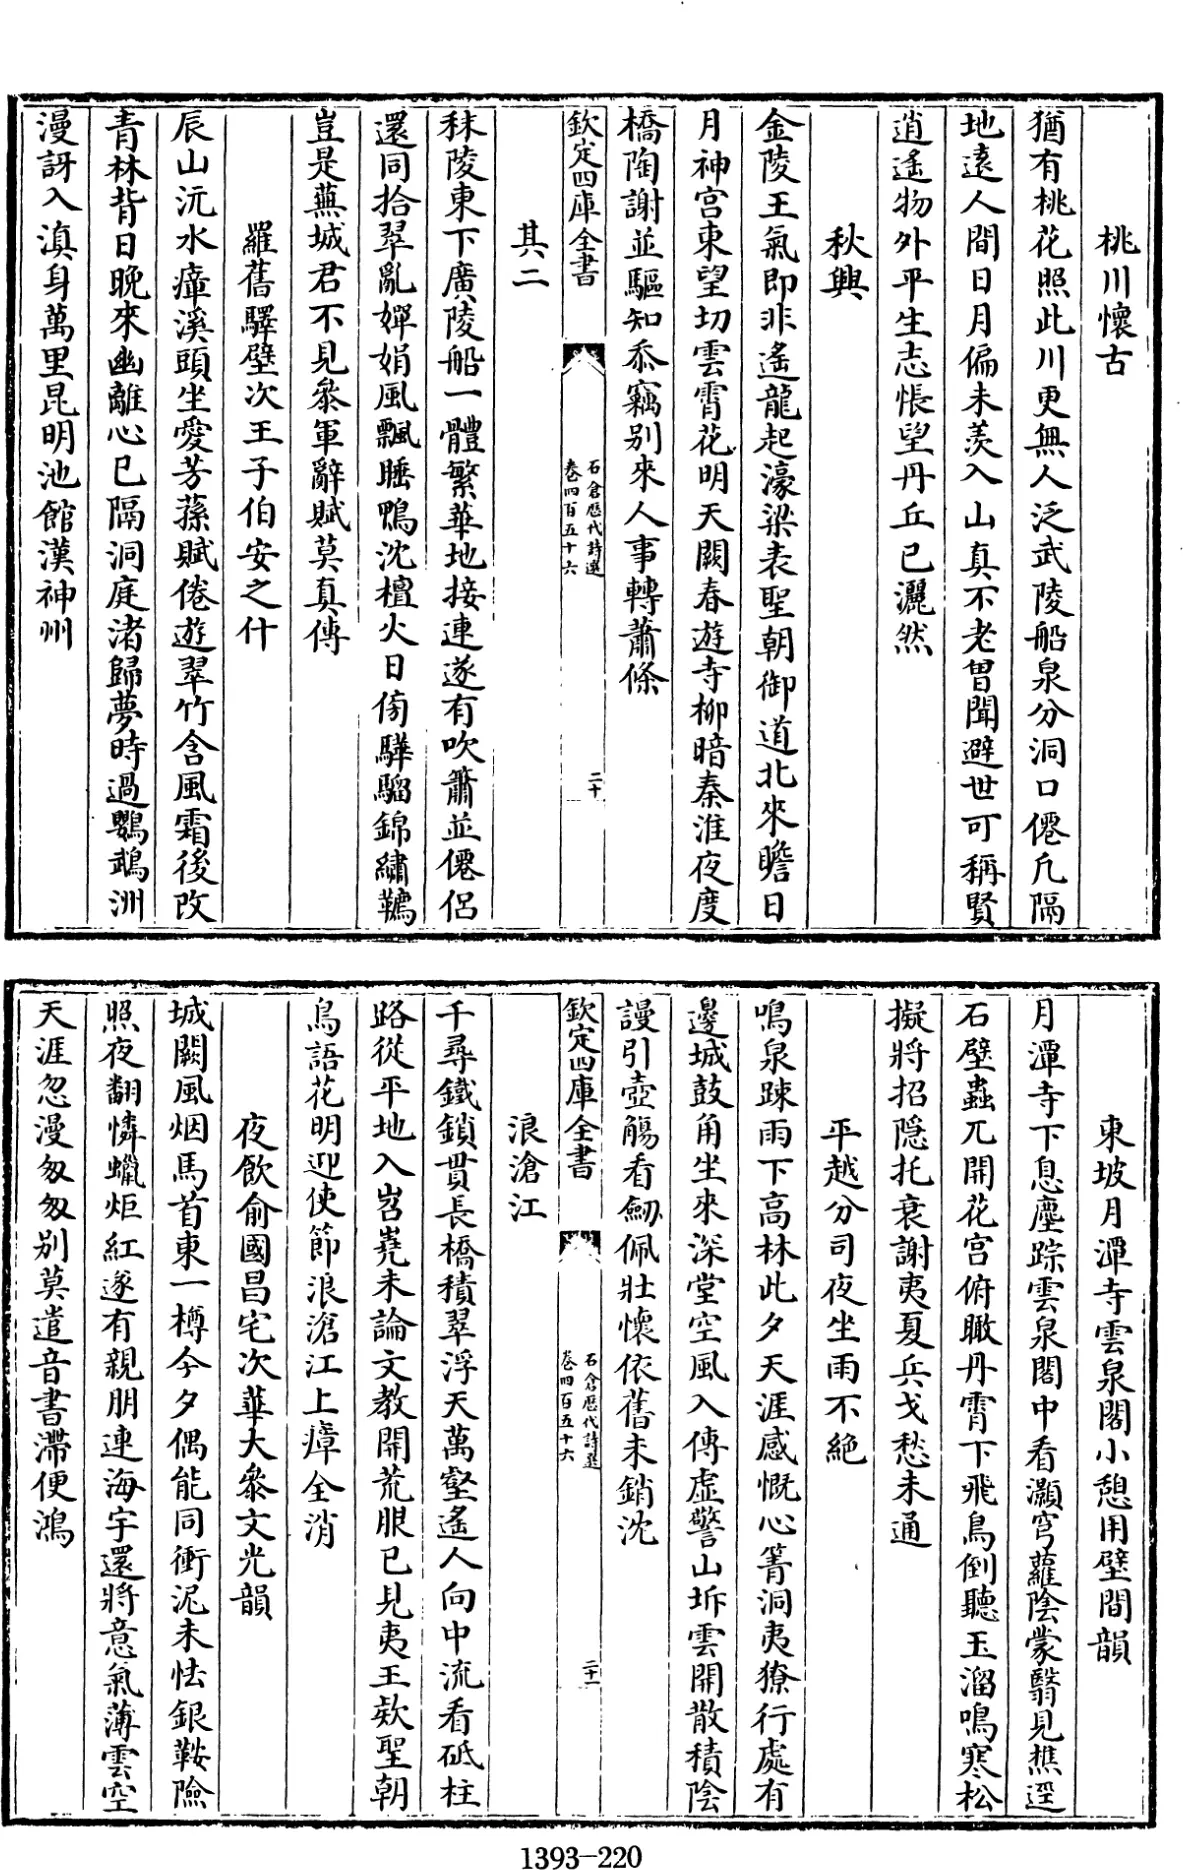 桃川懷古
猶有桃花照此川更無人泛武陵船泉分洞口僊凡隔
地遠人間日月偏未羨入山真不老曾聞避世可稱賢
逍遙物外平生志悵望丹丘已灑然
秋興
金陵王氣即非遙龍起濠梁表聖朝御道北來瞻日
月神宮東望切雲霄花明天闕春遊寺柳暗秦淮夜度
橋陶謝並驅知忝竊別來人事轉蕭條
欽定四庫全書
石倉歷代詩選
卷四百五十六
二十
其二
秣陵東下廣陵船一體繁華地接連遂有吹簫並僊侶
還同拾翠亂嬋娟風飄睡鴨沈檀火日傍驊騮錦繡韉
豈是蕪城君不見參軍辭賦莫真傳
羅舊驛壁次王子伯安之什
辰山沅水瘴溪頭坐愛芳蓀賦倦遊翠竹含風霜後改
青林背日晚來幽離心已隔洞庭渚歸夢時過鸚鵡洲
漫訝入滇身萬里昆明池館漢神州
東坡月潭寺雲泉閣小憩用壁間韻
月潭寺下息塵踪雲泉閣中看灝穹蘿陰蒙翳見樵逕
石壁蟲兀開花宮俯瞰丹霄下飛鳥倒聽玉溜鳴寒松
擬將招隱托衰謝夷夏兵戈愁未通
平越分司夜坐雨不絶
鳴泉踈雨下高林此夕天涯感慨心箐洞夷獠行處有
邊城鼓角坐來深堂空風入傳虛警山坼雲開散積陰
謾引壺觴看劒佩壯懷依舊未銷沈
欽定四庫全書
石倉歷代詩選
卷四百五十六
二十一
浪滄江
千尋鐵鎖貫長橋積翠浮天萬壑遙人向中流看砥柱
路從平地入岧嶤未論文教開荒服已見夷王欵聖朝
鳥語花明迎使節浪滄江上瘴全消
夜飲俞國昌宅次華大參文光韻
城闕風烟馬首東一樽今夕偶能同衝泥未怯銀鞍險
照夜翻憐蠟炬紅遂有親朋連海宇還將意氣薄雲空
天涯忽漫匆匆別莫遣音書滯便鴻
1393-220